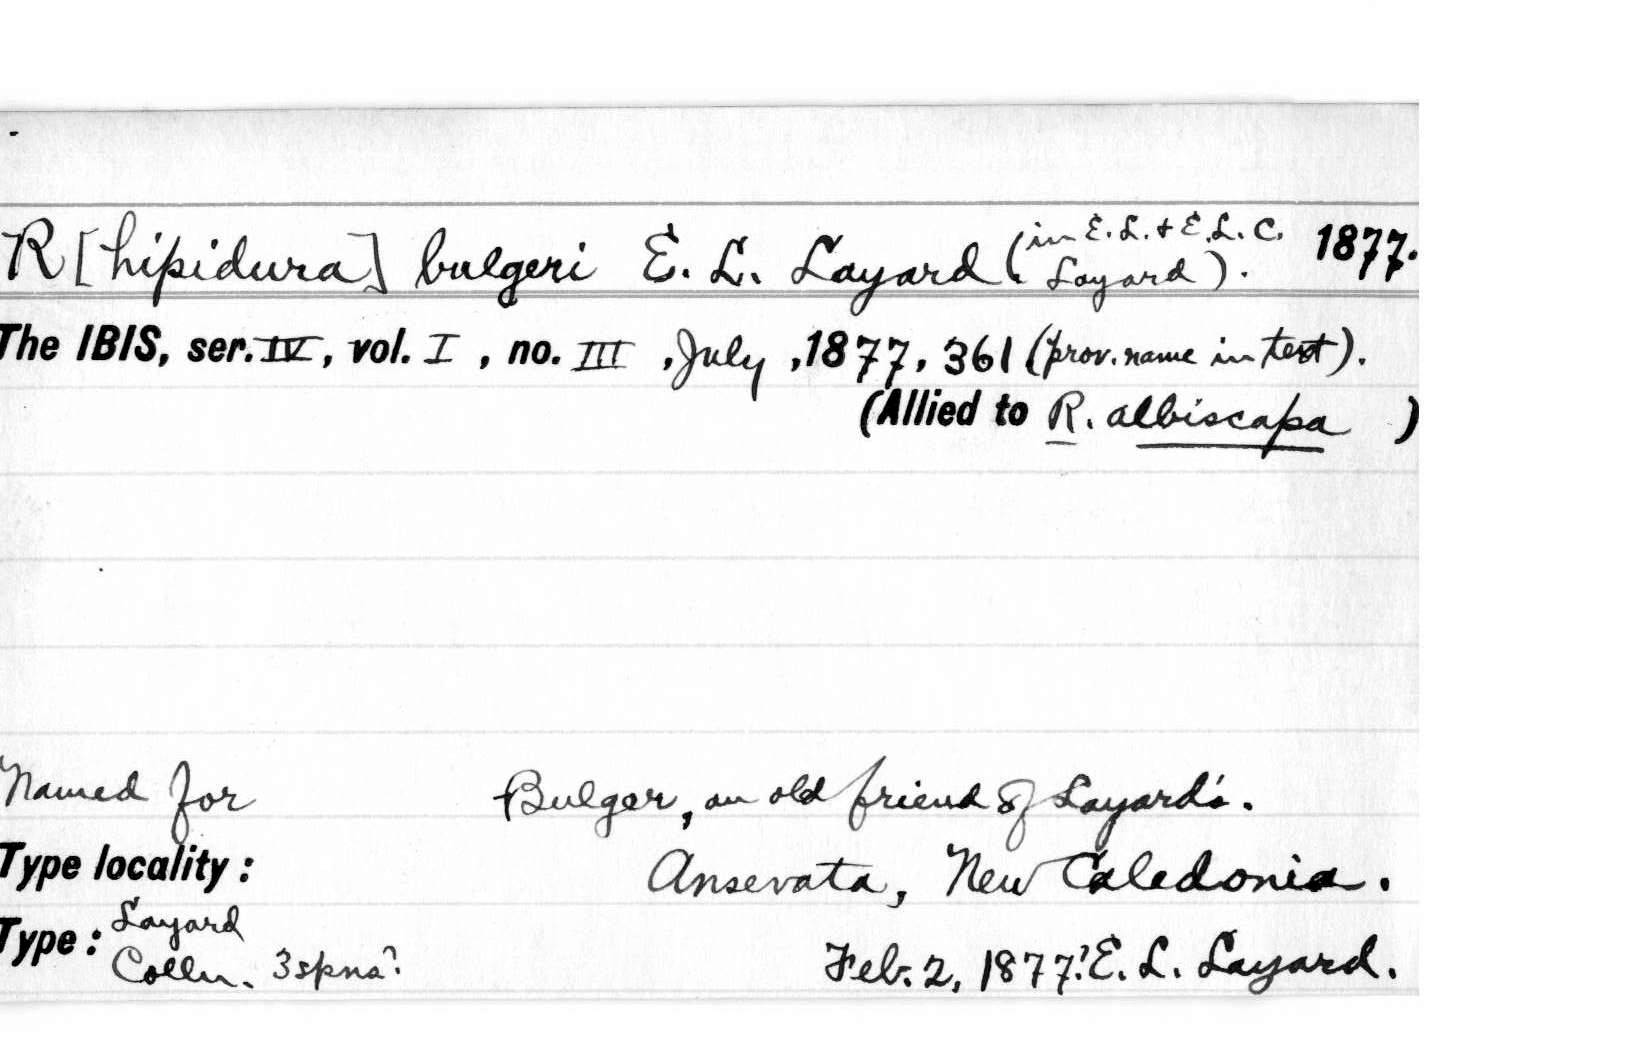 R[hipidura] bulgeri E. L. Layard (in E. L. + E. L. C. Layard). 1877.
The IBIS, ser. IV, vol. I, no. III, July, 1877, 361 (prov. name in text).
(Allied to R. albiscapa )
Named for Bulger, an old friend of Layard's.
Type locality: Ansevata, New Caledonia.
Type: Layard Colln. 3 spns? Feb. 2, 1877? E. L. Layard.